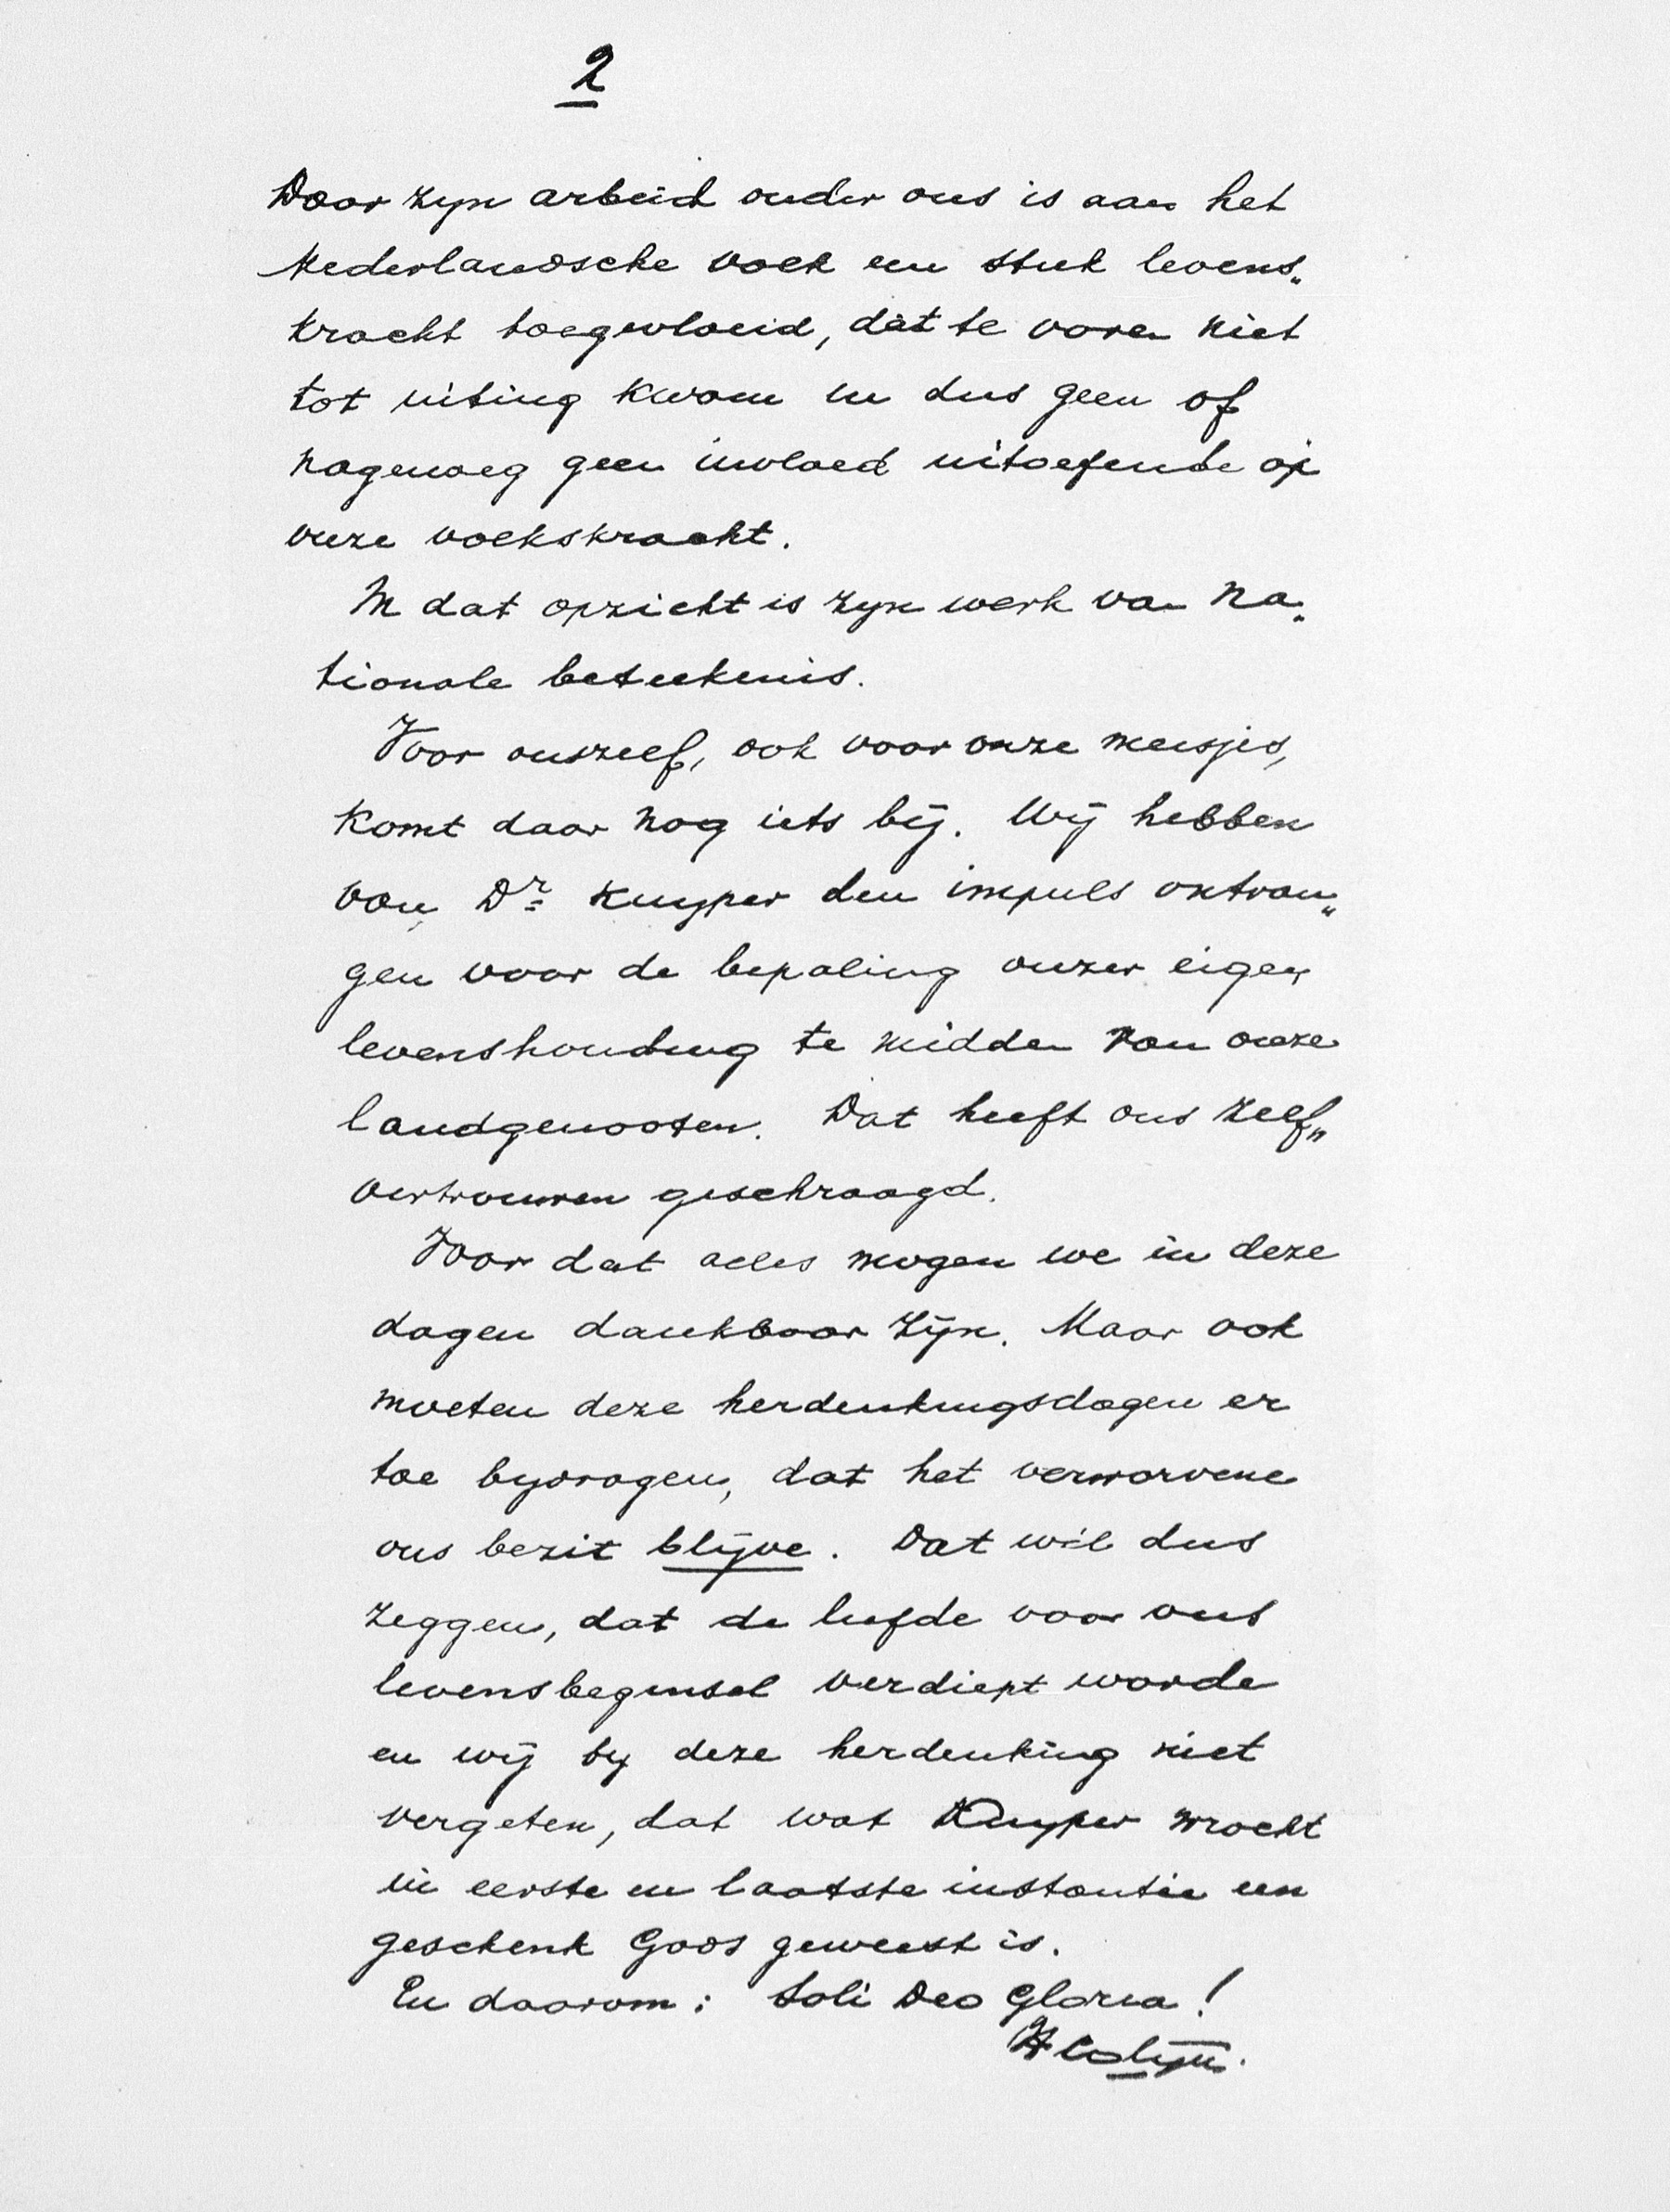 2
Door zyn arbeid onder ons is aan het
Nederlandsche volk een stuk levens„
kracht toegevloeid, dàt te voren niet
tot uiting kwam en dus geen of
nagenoeg geen invloed uitoefende op
onze volkskracht.
In dat opzicht is zyn werk van na„
tionale beteekenis.
Voor onszelf, ook voor onze meisjes,
komt daar nog iets bij. Wij hebben
van Dr Kuyper den impuls ontvan„
gen voor de bepaling onzer eigen
levenshouding te midden van onze
landgenooten. Dat heeft ons zelf„
vertrouwen geschraagd.
Voor dat alles mogen we in deze
dagen dankbaar zijn. Maar ook
moeten deze herdenkingsdagen er
toe bydragen, dat het verworvene
ons bezit blijve. Dat wil dus
zeggen, dat de liefde voor ons
levensbeginsel verdiept worde
en wij by deze herdenking niet
vergeten, dat wat Kuyper wrocht
in eerste en laatste instantie een
geschenk Gods geweest is.
En daarom: Soli Deo Gloria!
H Colijn.